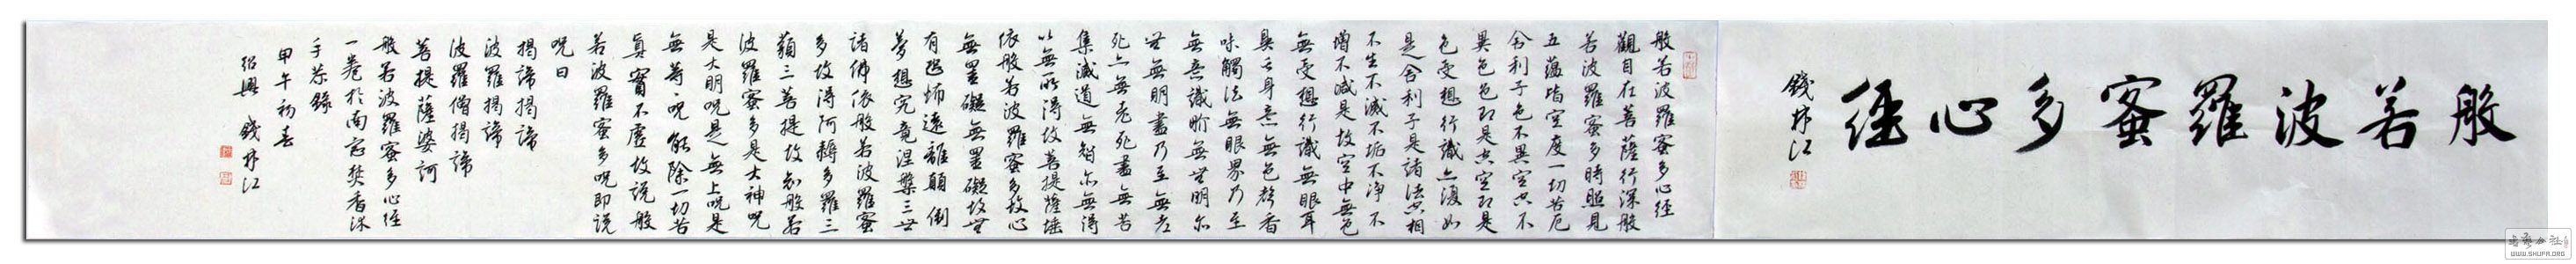 般若波羅蜜多心經
錢林江
般若波羅蜜多心經
觀自在菩薩行深般
若波羅蜜多時照見
五蘊皆空度一切苦厄
舍利子色不異空空不
異色色即是空空即是
色受想行識亦復如
是舍利子是諸法空相
不生不滅不垢不净不
增不減是故空中無色
無受想行識無眼耳
鼻舌身意無色聲香
味觸法無眼界乃至
無意識界無無明亦
無無明盡乃至無老
死亦無老死盡無苦
集滅道無智亦無得
以無所得故菩提薩埵
依般若波羅蜜多故心
無罣礙無罣礙故無
有恐怖遠離顛倒
夢想究竟涅槃三世
諸佛依般若波羅蜜
多故得阿耨多羅三
藐三菩提故知般若
波羅蜜多是大神呪
是大明呪是無上呪是
無等呪能除一切苦
真實不虛故説般
若波羅蜜多呪即説
呪曰
揭諦揭諦
波羅揭諦
波羅僧揭諦
菩提薩婆訶
般若波羅蜜多心經
一卷於南窗焚香沐
手恭錄
甲午初春
紹興 錢林江
WWW.SHUFA.ORG